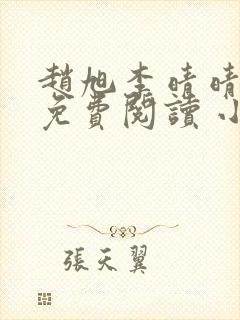 趙旭李晴晴
免費閱讀小
張天翼